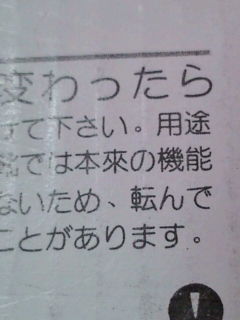 変わったら
けて下さい。用途
靴では本來の機能
ないため、転んで
ことがあります。